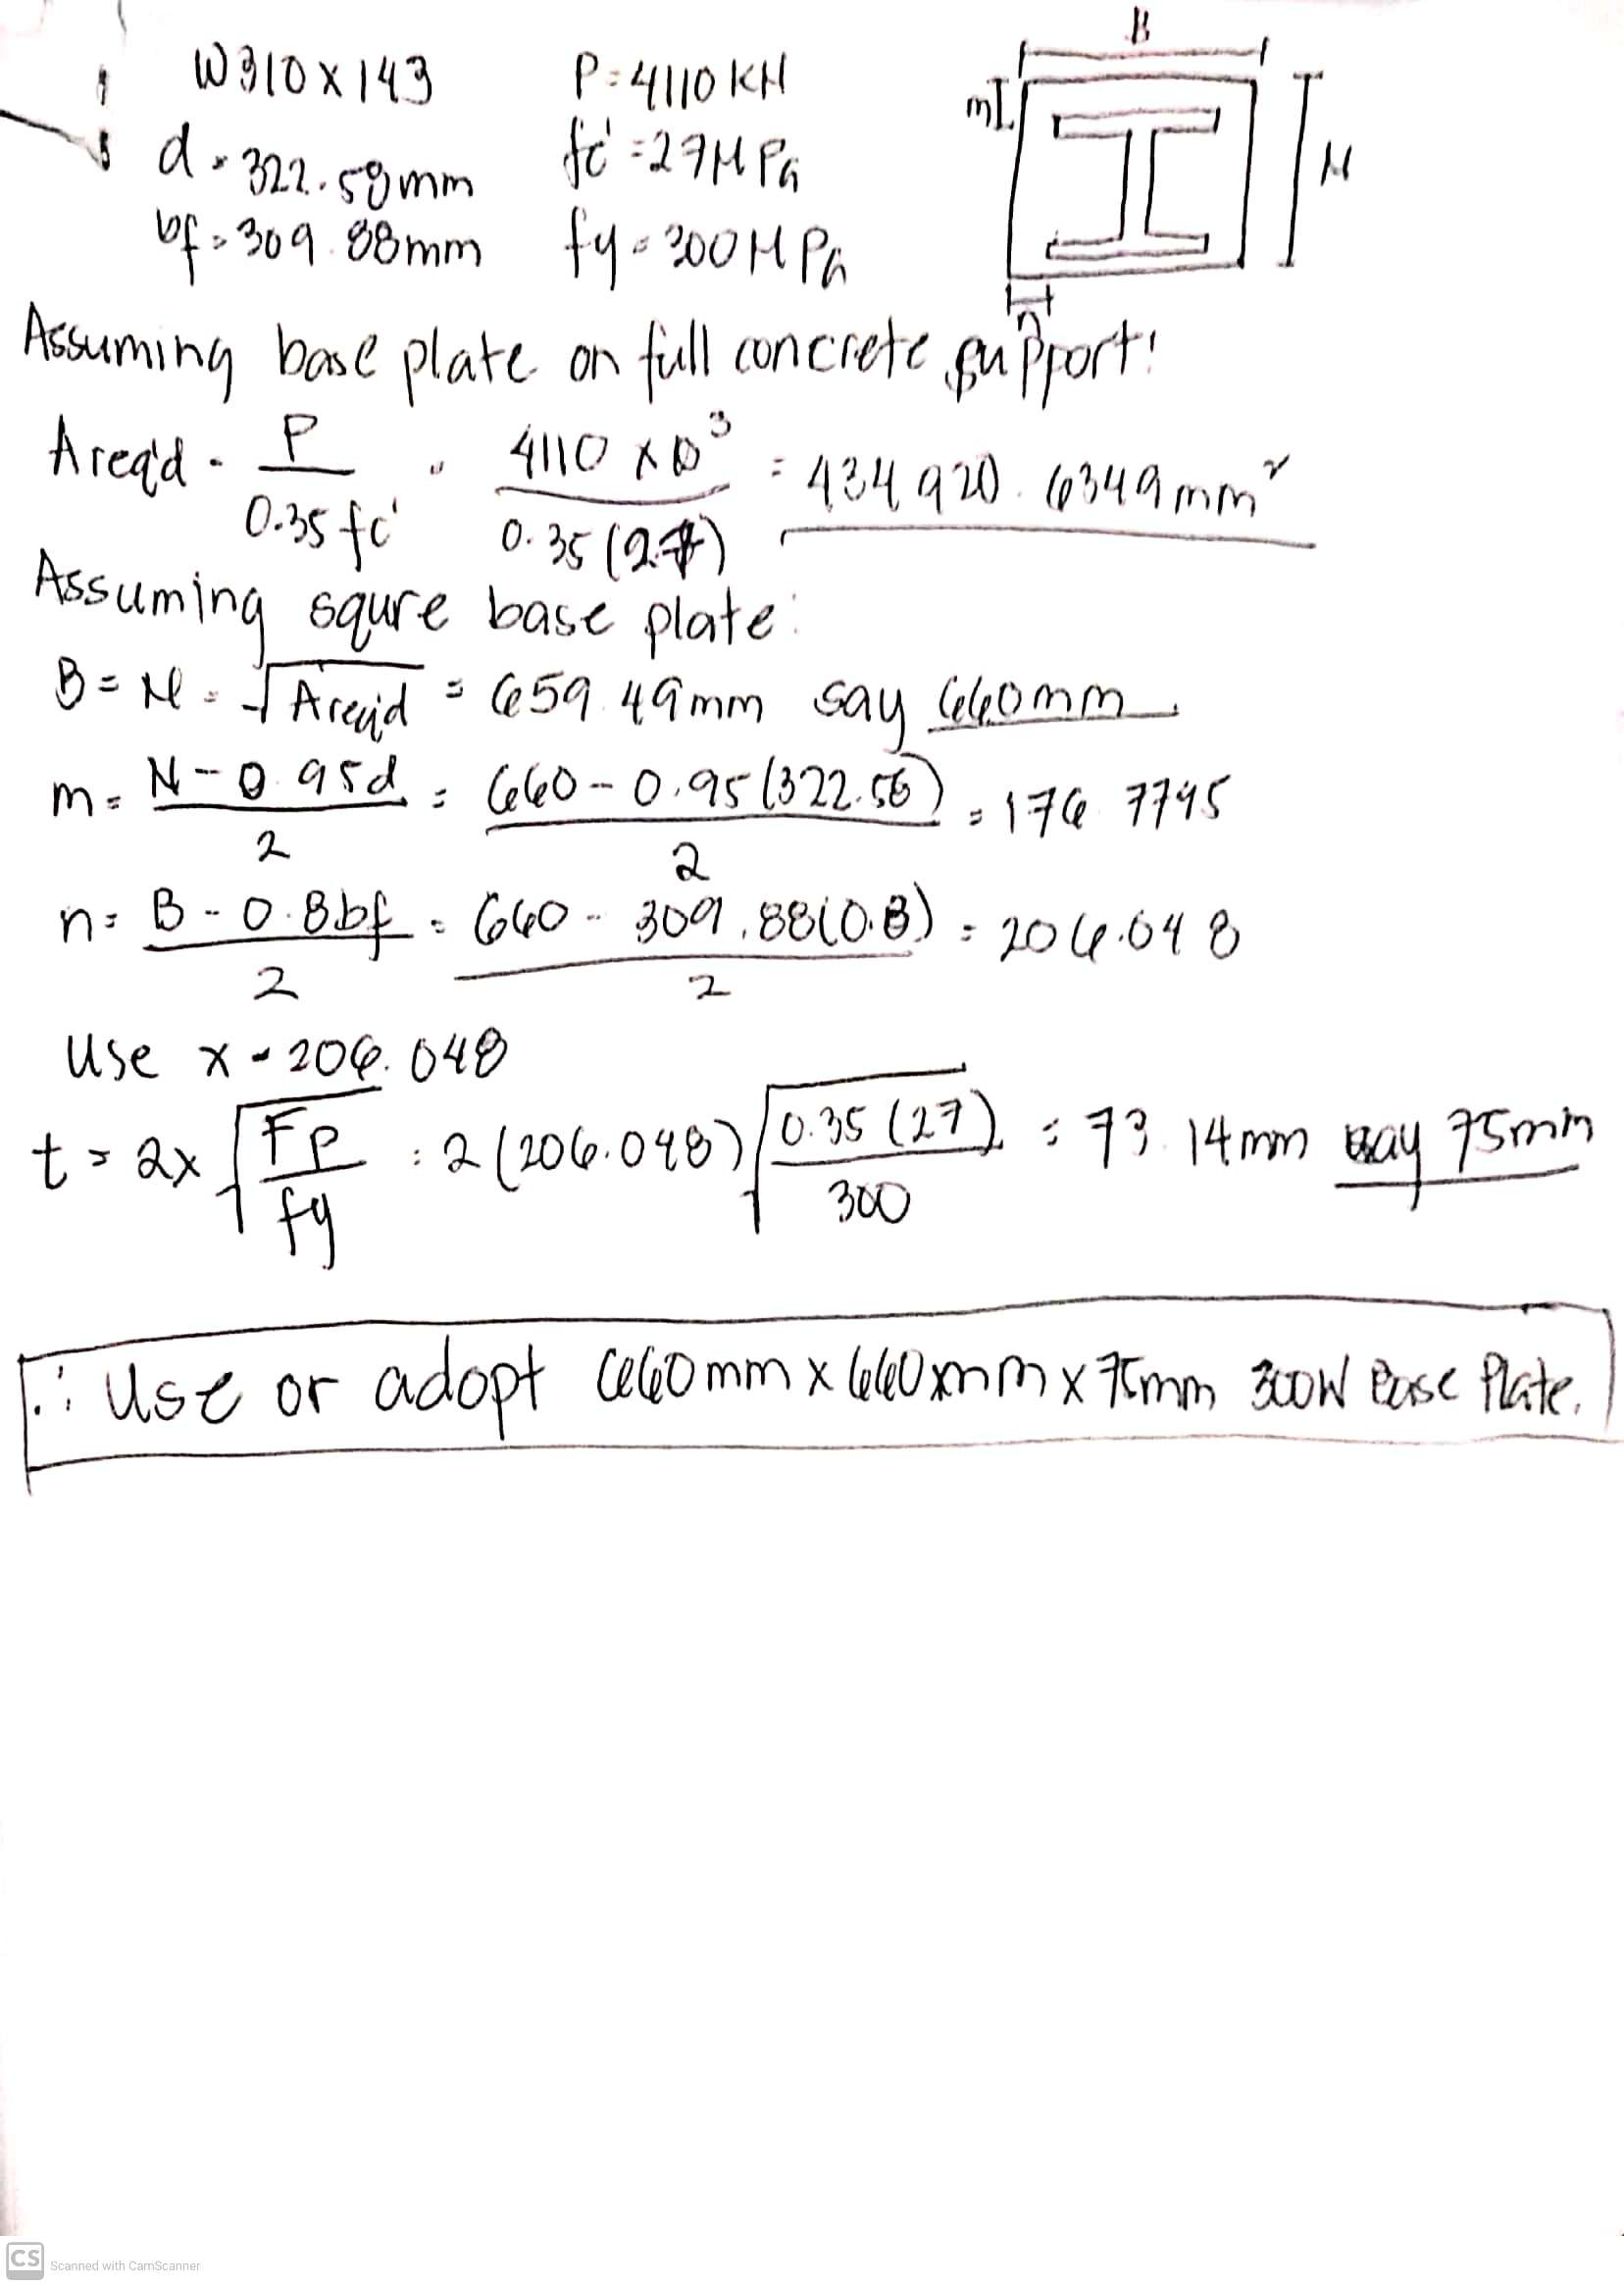 W310 x 143 P = 4110 KN B
d = 322.58mm fc' = 27MPa m N
bf = 309.88mm fy = 300MPa n
Assuming base plate on full concrete support:
Areq'd = P / 0.35 fc' = 4110 x 10³ / 0.35 (27) = 434 920.6349 mm²
Assuming squre base plate:
B = N = √Areq'd = 659.49mm say 660mm
m = N - 0.95d / 2 = 660 - 0.95 (322.56) / 2 = 176.7795
n = B - 0.8bf / 2 = 660 - 309.88(0.8) / 2 = 206.048
Use x = 206.048
t = 2x √Fp / fy = 2 (206.048) √0.35 (27) / 300 = 73.14mm say 75mm
∴ Use or adopt 660mm x 660mm x 75mm 300W Base Plate.
CS Scanned with CamScanner